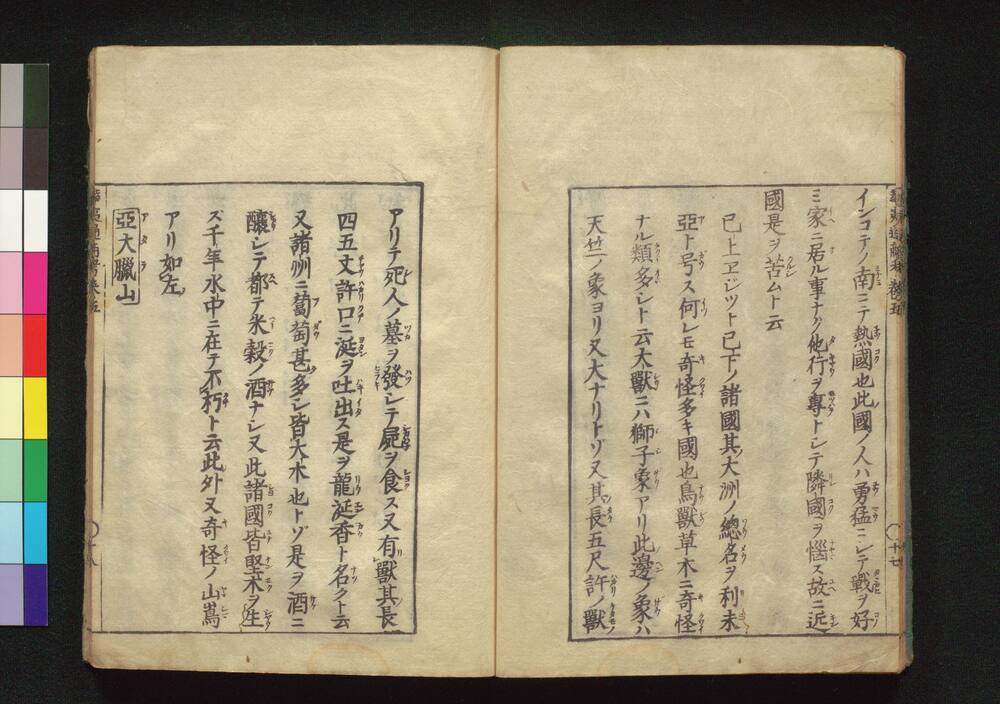 インコテノ南ニテ熱國也此國ノ人ハ勇猛ニシテ戰ヲ好
ミ家ニ居ル事ナク他行ヲ專トシテ隣國ヲ惱ス故ニ近
國是ヲ苦ムト云
已上ヱジツト已下ノ諸國其大洲ノ總名ヲ利未
亞ト号ス何レモ奇怪多キ國也鳥獸草木ニ奇怪
ナル類多シト云大獸ニハ獅子象アリ此邊ノ象ハ
天竺ノ象ヨリ又大ナリトゾ又其長五尺許ノ獸
アリテ死人ノ墓ヲ發シテ屍ヲ食ス又有獸其長
四五丈許口ニ涎ヲ吐出ス是ヲ龍涎香ト名クト云
又諸州ニ葡萄甚多シ皆大木也トゾ是ヲ酒ニ
釀シテ都テ米穀ノ酒ナシ又此諸國皆堅木ヲ生
ズ千年水中ニ在テ不朽ト云此外又奇怪ノ山嶌
アリ如左
亞大臘山